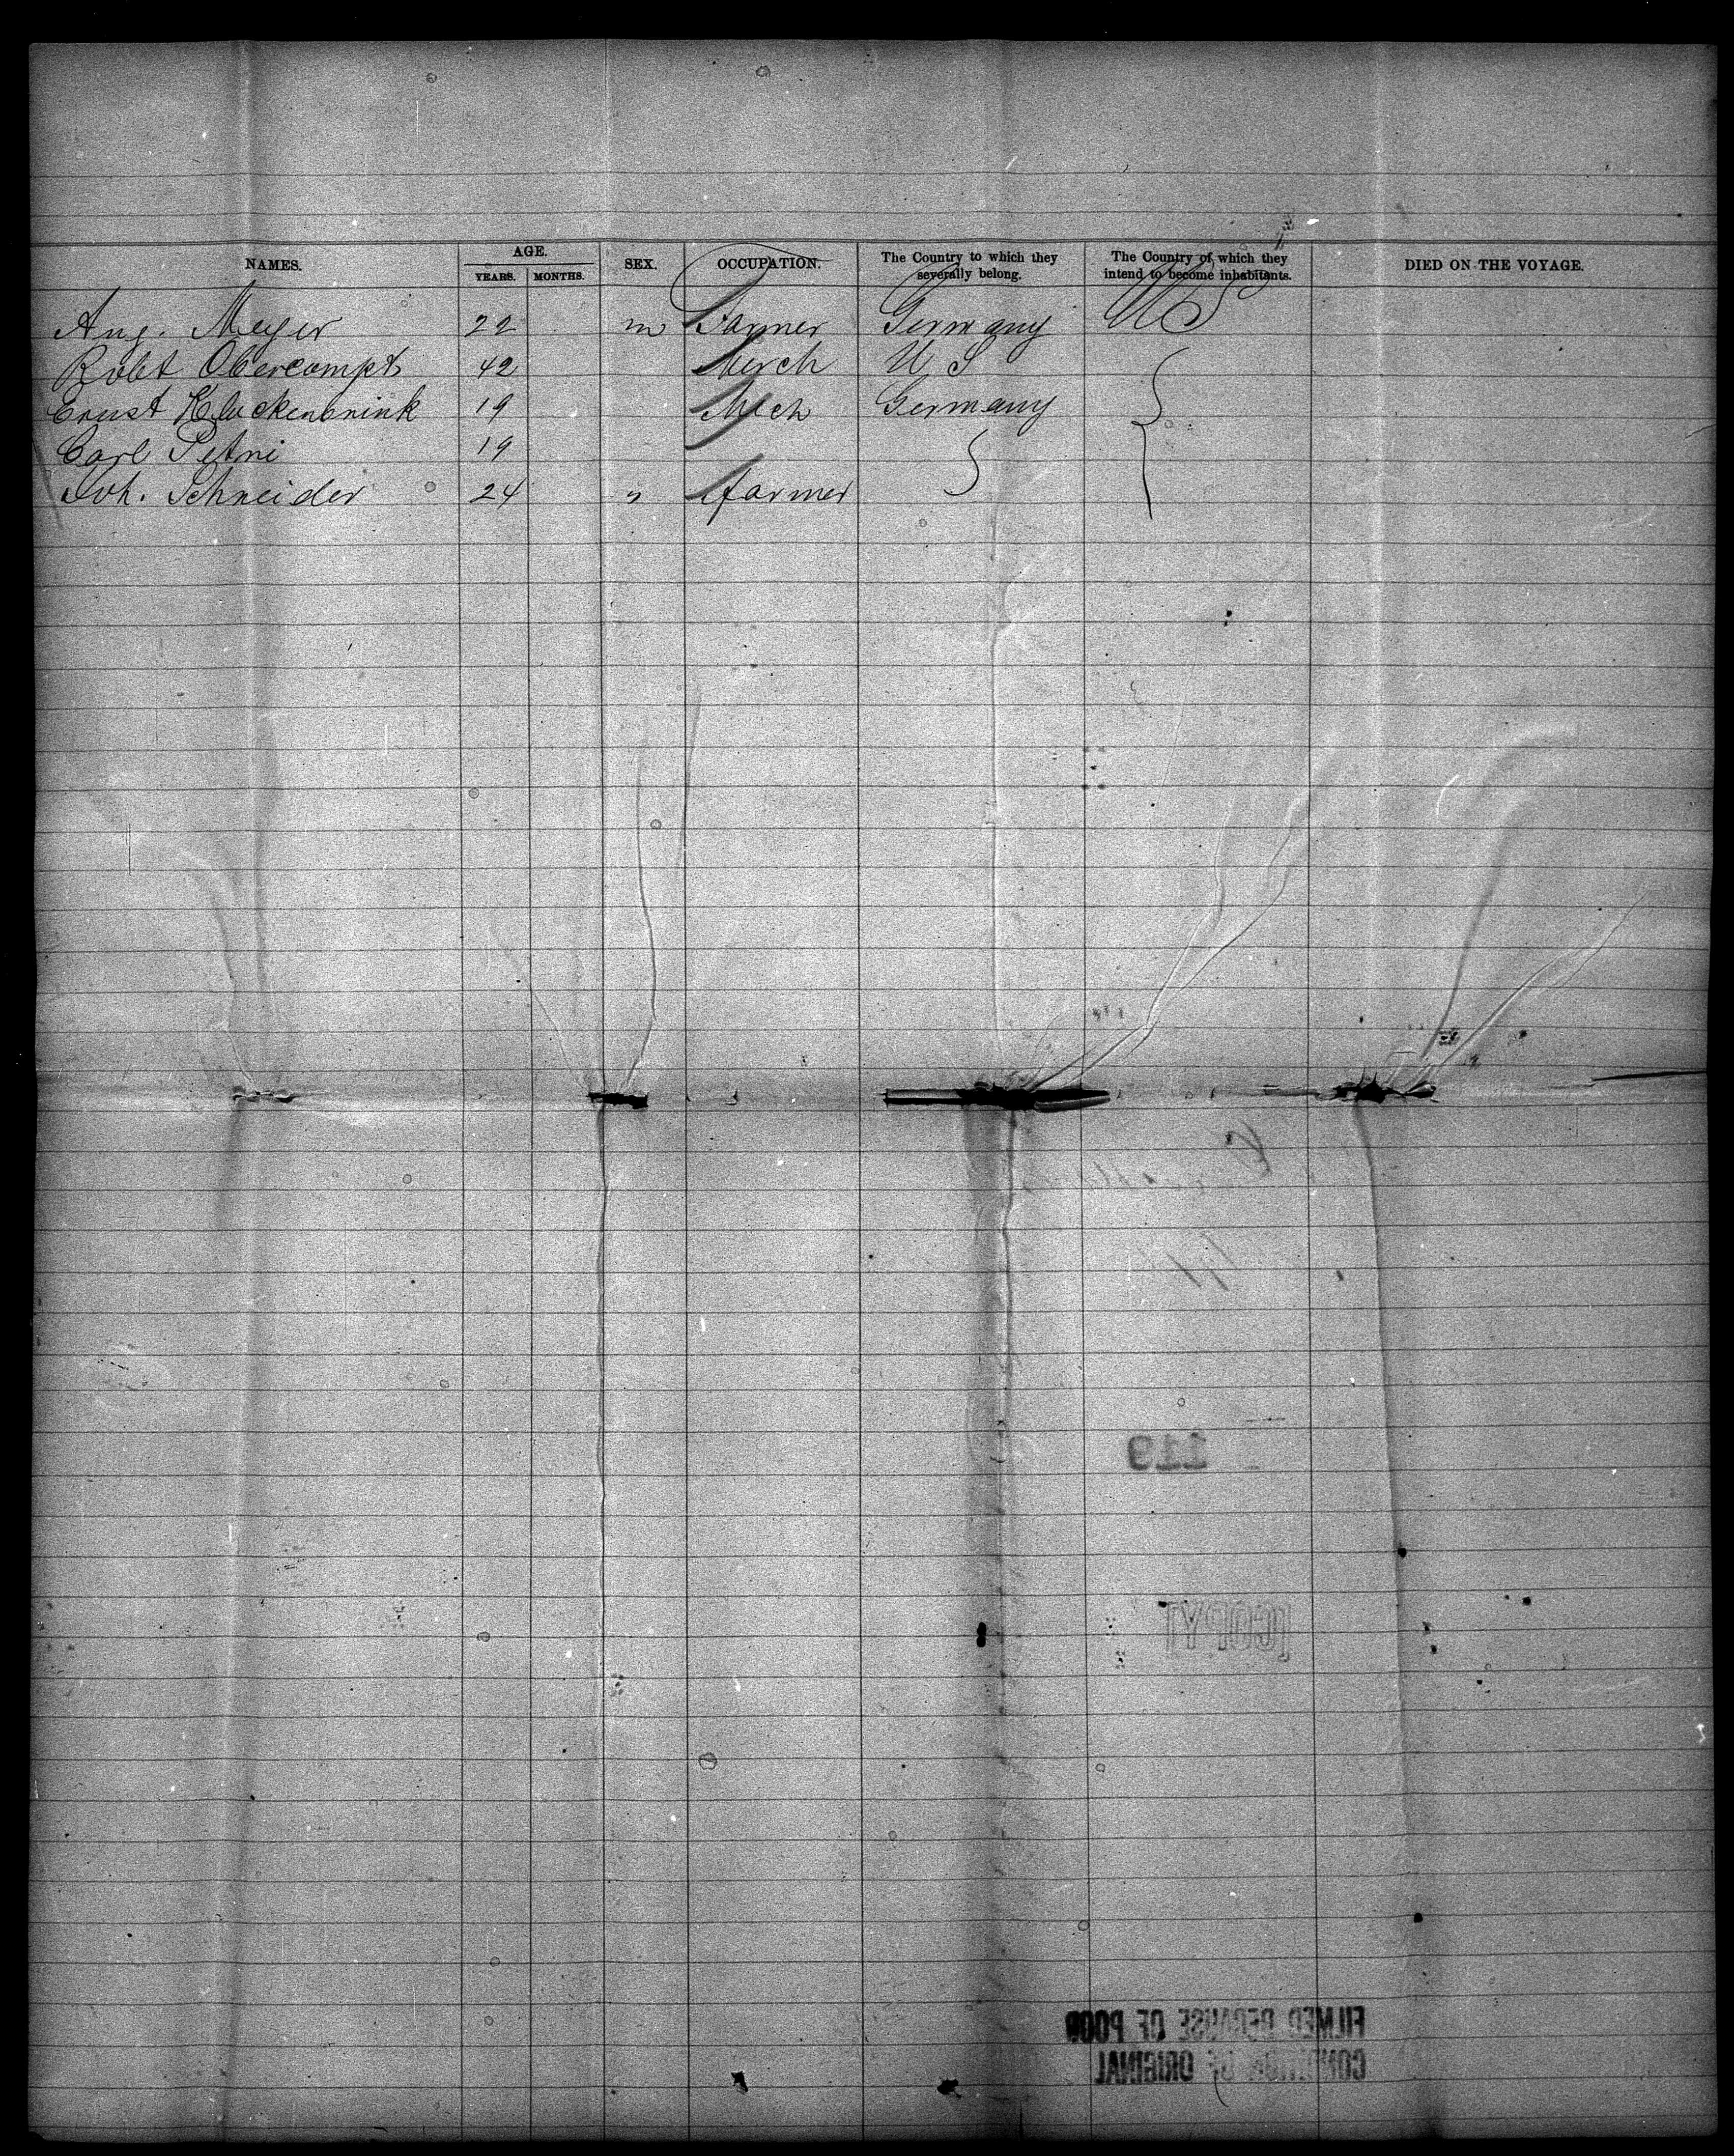 NAMES. AGE. YEARS. MONTHS. SEX. OCCUPATION. The Country to which they severally belong. The Country of which they intend to become inhabitants. DIED ON THE VOYAGE.
Aug. Meyer 22 m Farmer Germany US
Robt Obercampt 42 Merch U S
Ernst Kluckenbrink 19 Mech Germany
Carl Petri 19
Joh. Schneider 24 " farmer
119
[COPY]
FILMED BECAUSE OF POOR
CONDITION OF ORIGINAL